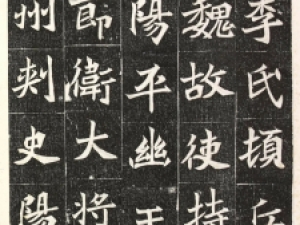 李氏頓丘
魏故使持
陽平幽王
節衛大將
州刾史陽